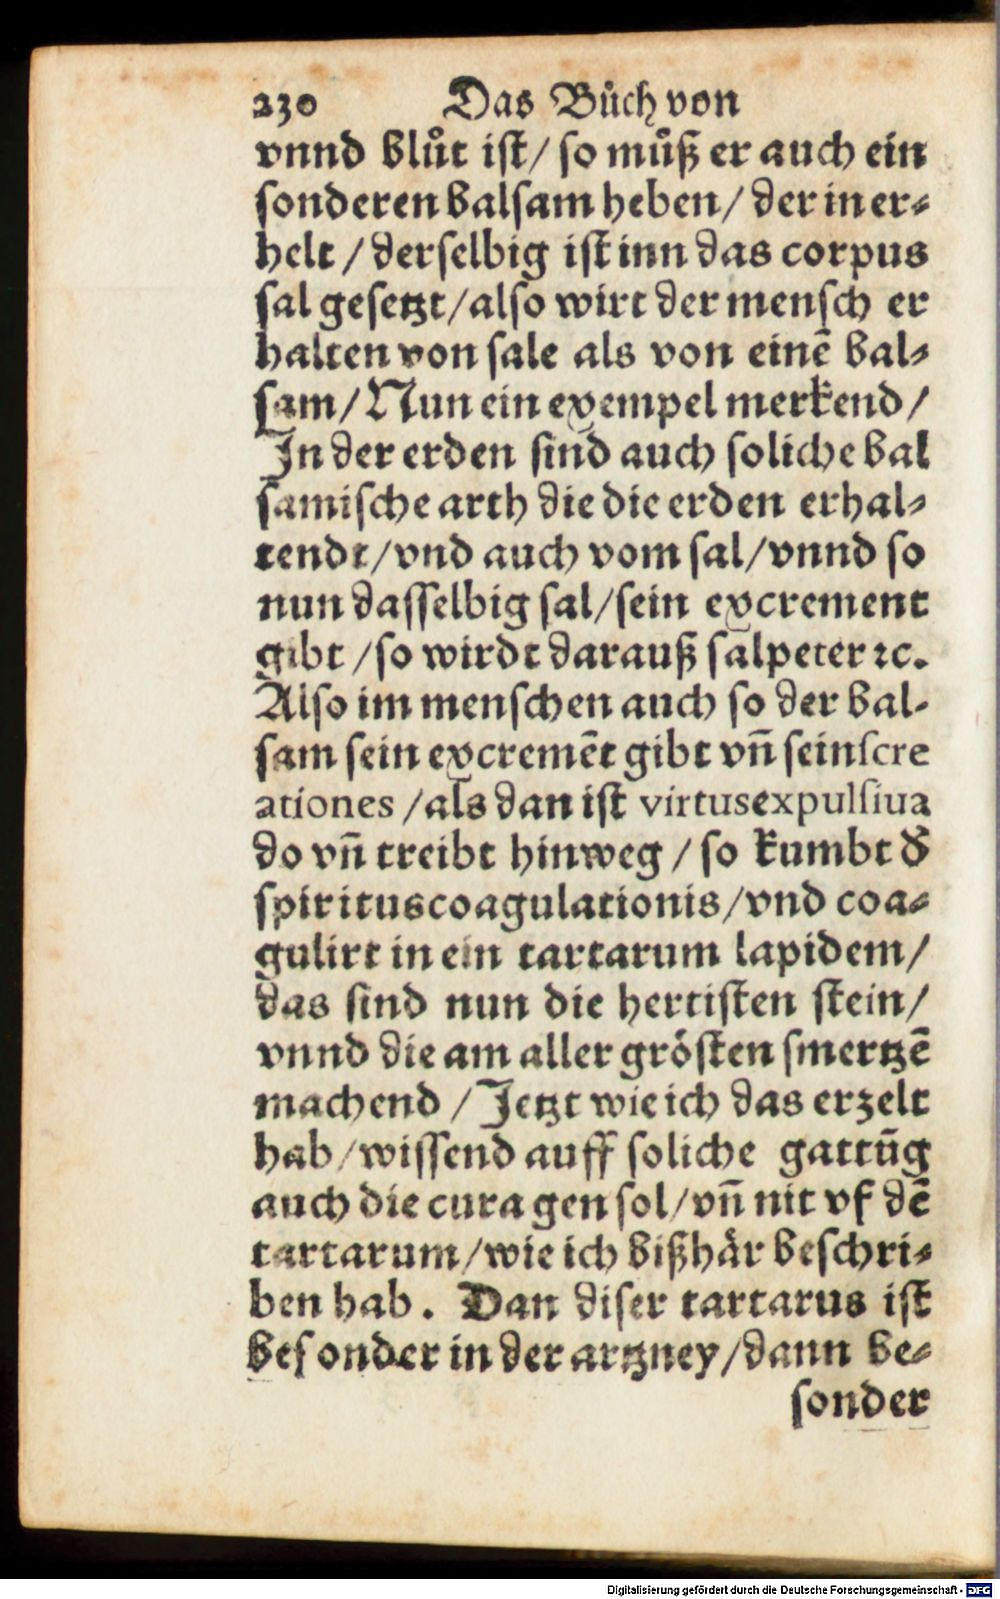 230 Das Bůch von
vnnd blůt ist/ so můß er auch ein
sonderen balsam heben/ der in er⸗
helt / derselbig ist inn das corpus
sal gesetzt/also wirt der mensch er
halten von sale als von einē bal⸗
sam/ Nun ein exempel merkend/
In der erden sind auch soliche bal
samische arth die die erden erhal⸗
tendt/vnd auch vom sal/vnnd so
nun dasselbig sal/sein excrement
gibt /so wirdt darauß salpeter ꝛc.
Also im menschen auch so der bal⸗
sam sein excremēt gibt vñ sein scre
ationes /als dan ist virtus expulsiua
do vñ treibt hinweg / so kumbt ð
spiritus coagulationis/vnd coa⸗
gulirt in ein tartarum lapidem/
das sind nun die hertisten stein/
vnnd die am aller grösten smertzē
machend / Jetzt wie ich das erzelt
hab/wissend auff soliche gattūg
auch die cura gen sol/vñ nit vf dē
tartarum/wie ich bißhär beschri⸗
ben hab. Dan diser tartarus ist
besonder in der artzney/dann be⸗
sonder
Digitalisierung gefördert durch die Deutsche Forschungsgemeinschaft - DFG